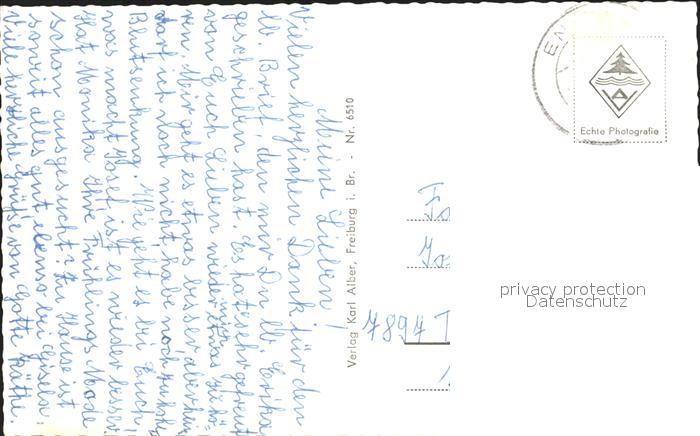 Meine Lieben!
Vielen herzlichen Dank für den
lb. Brief, den mir Du lb. Erika
geschrieben hast. Es hat sehr gefreut
von Euch Lieben wieder etwas zu hö-
ren. Mir geht es etwas besser aber hier
dort ist noch nicht habe noch
Blutsenkung. Wie geht es bei Euch!
was macht Josef ist es wieder besser.
Hat Monika Ihre Frühlings Mode
schon ausgesucht? Zu Hause ist
soweit alles gut ebenso bei Gisela.
Viele herzliche Grüße von Gotte Käthe.
Verlag Karl Alber, Freiburg i. Br. - Nr. 6510
EN
Echte Photografie
7894 T
privacy protection
Datenschutz